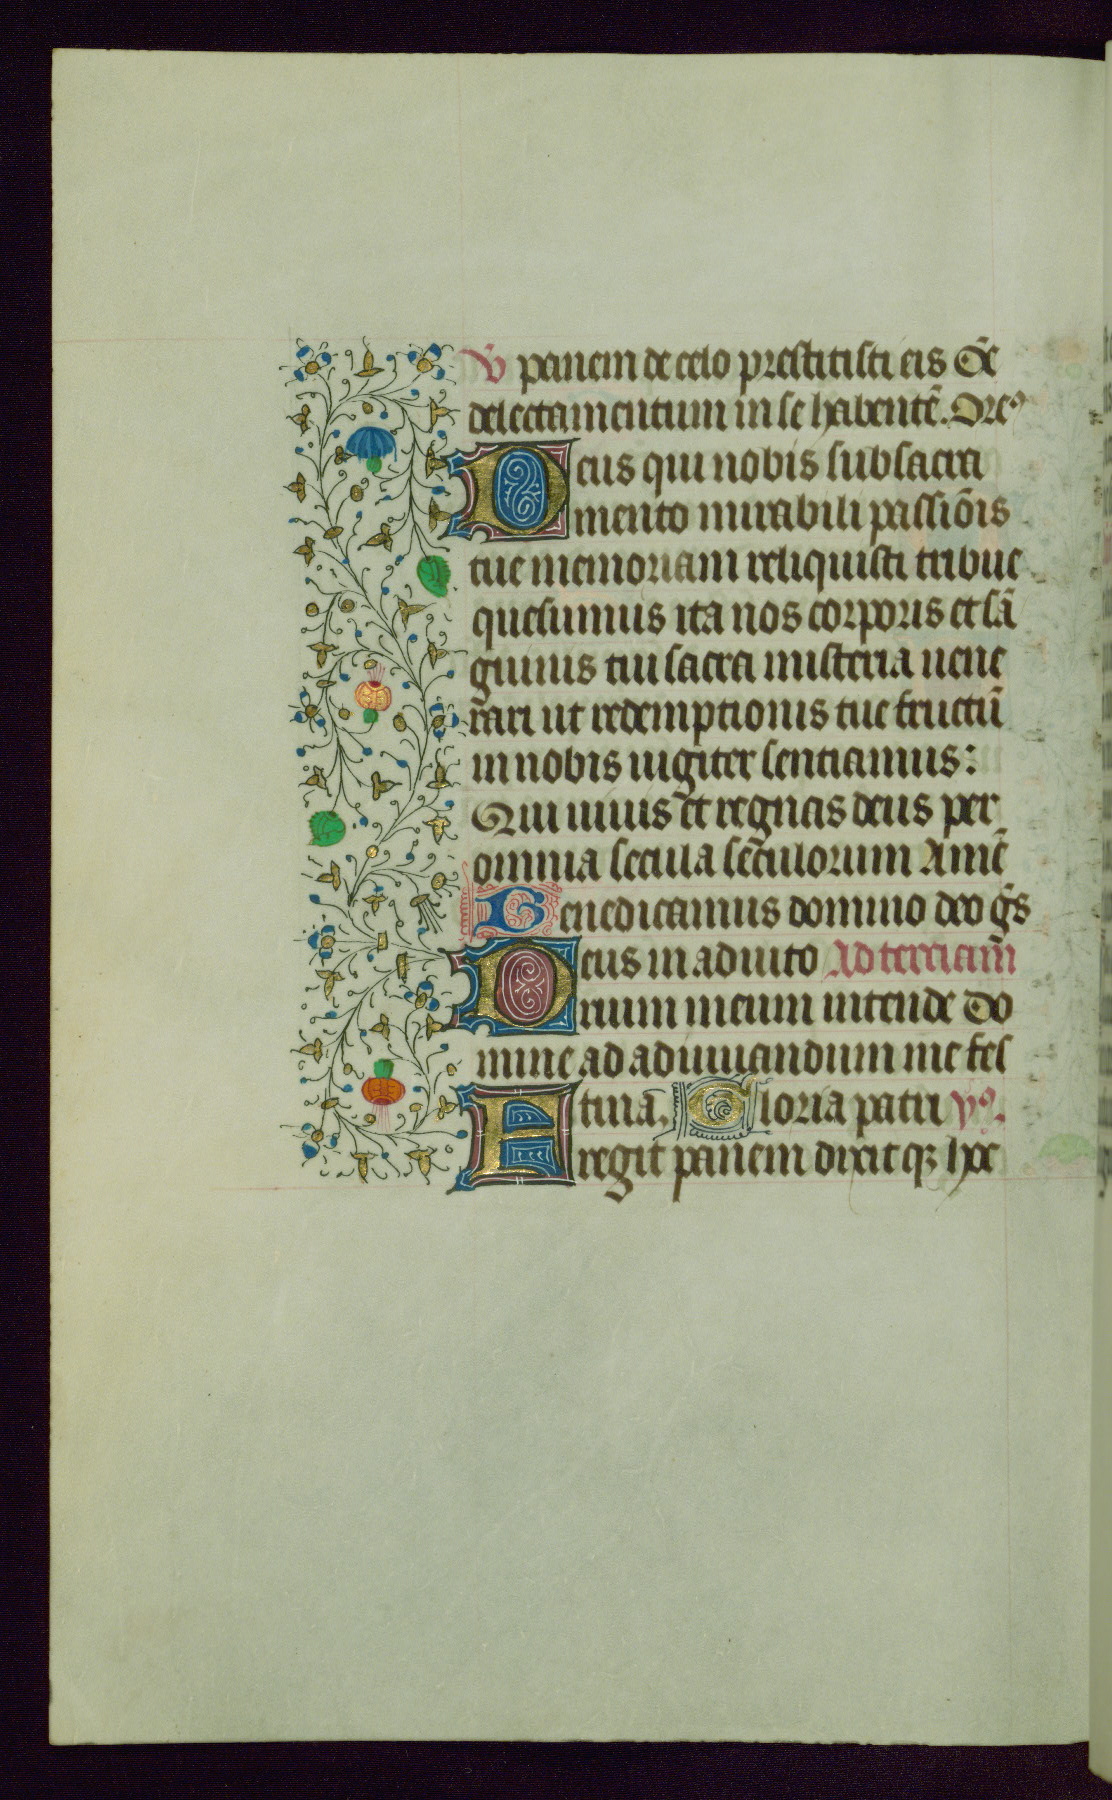 v̄ panem de celo prestitisti eis Oē
delectamentum in se habentē. Oreꝰ
Deus qui nobis sub sacra
mento mirabili passiōis
tue memoriam reliquisti tribue
quesumus ita nos corporis et sā
guinis tui sacra misteria uene
rari ut redemptionis tue fructū
in nobis iugiter sentiamus:
Qui uiuis et regnas deus per
omnia secula seculorum Amē
Benedicamus domino deo gr̄s
Deus in adiuto Ad terciam
rium meum intende Do
mine ad adiuuandum me fes
tina. Gloria patri
Fregit panem dixitqꝫ hoc